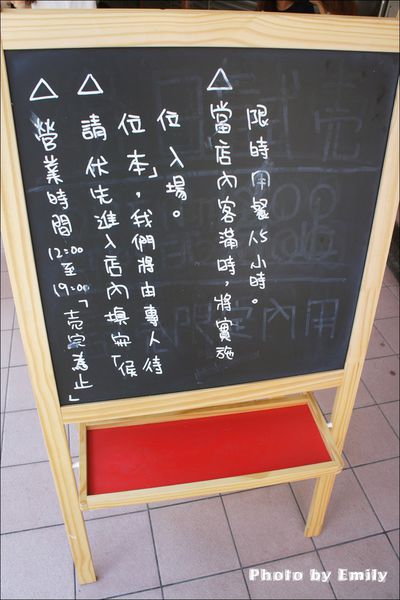 △營業時間 12:00至19:00「売完為止」
△請伏先進入店內填寫「候
位本」，我們將由專人待
位入場。
△當店內客滿時，將實施
限時用餐1.5小時。
Photo by Emily